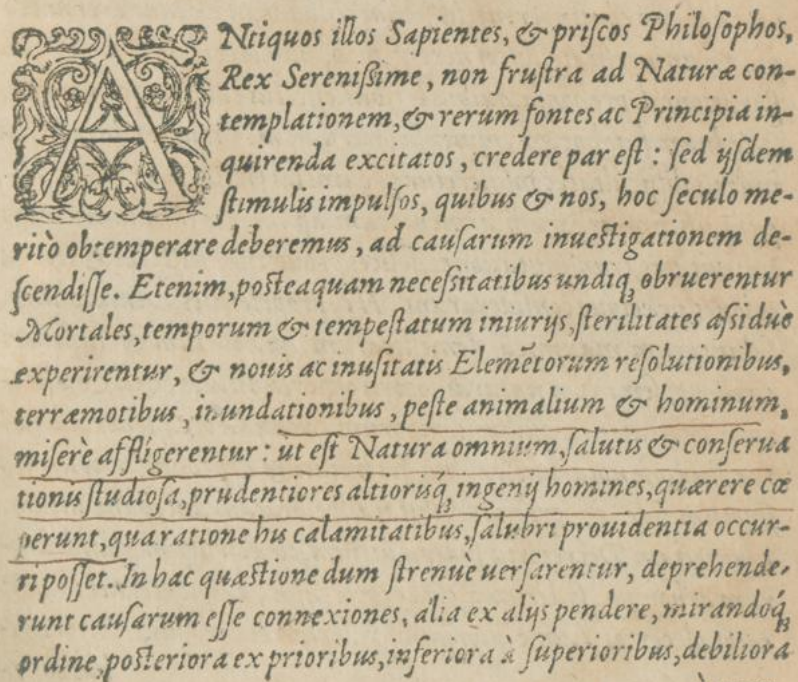 ANtiquos illos Sapientes, & priſcos Philoſophos,
Rex Sereniſsime, non fruſtra ad Naturæ con-
templationem, & rerum fontes ac Principia in-
quirenda excitatos, credere par eſt: ſed ijſdem
ſtimulis impulſos, quibus & nos, hoc ſeculo me-
ritò obtemperare deberemus, ad cauſarum inueſtigationem de-
ſcendiſſe. Etenim, poſteaquam neceſsitatibus undiq; obruerentur
Mortales, temporum & tempeſtatum iniurijs, ſterilitates aſsiduè
experirentur, & nouis ac inuſitatis Elemẽtorum reſolutionibus,
terræmotibus, inundationibus, peſte animalium & hominum,
miſerè affligerentur: ut eſt Natura omnium, ſalutis & conſerua
tionis ſtudioſa, prudentiores altiorisq́; ingenij homines, quærere cœ
perunt, qua ratione his calamitatibus, ſalubri prouidentia occur-
ri poſſet. In hac quæſtione dum ſtrenuè uerſarentur, deprehende-
runt cauſarum eſſe connexiones, alia ex alijs pendere, mirandoq́;
ordine, poſteriora ex prioribus, inferiora à ſuperioribus, debiliora